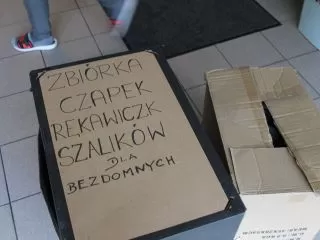 ZBIÓRKA
CZAPEK
RĘKAWICZK
SZALIKÓW
DLA
BEZDOMNYCH